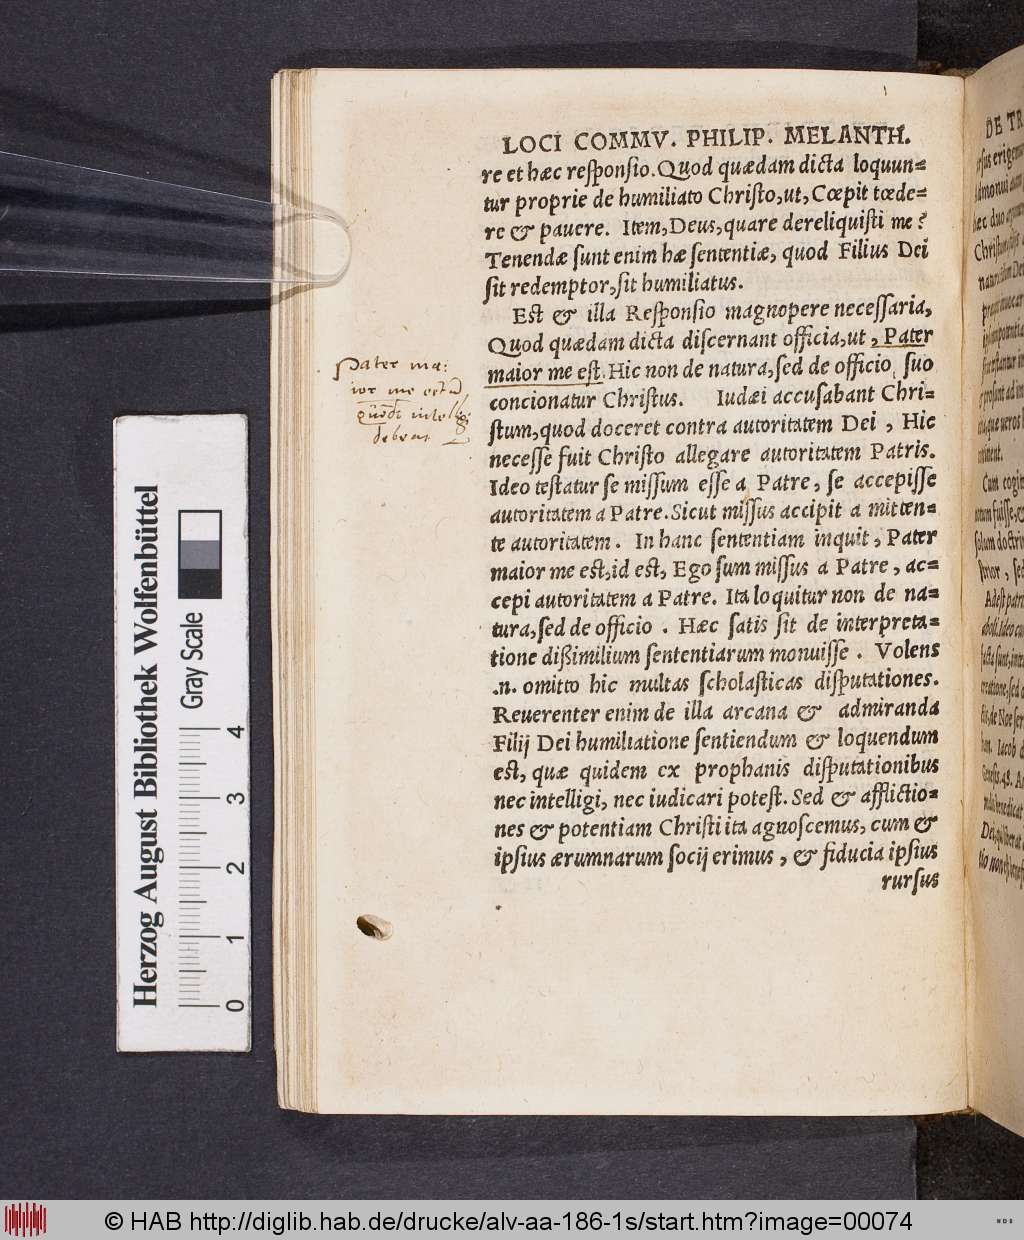 LOCI COMMV. PHILIP. MELANTH.
re et hæc responsio. Quod quædam dicta loquun=
tur proprie de humiliato Christo, ut, Cœpit tœde=
re & pauere. Item, Deus, quare dereliquisti me?
Tenendæ sunt enim hæ sententiæ, quod Filius Dei
sit redemptor, sit humiliatus.
Est & illa Responsio magnopere necessaria,
Quod quædam dicta discernant officia, ut, Pater
maior me est. Hic non de natura, sed de officio suo
concionatur Christus. Iudæi accusabant Chri=
stum, quod doceret contra autoritatem Dei, Hic
necesse fuit Christo allegare autoritatem Patris.
Ideo testatur se missum esse a Patre, se accepisse
autoritatem a Patre. Sicut missus accipit a mitten=
te autoritatem. In hanc sententiam inquit, Pater
maior me est, id est, Ego sum missus a Patre, ac=
cepi autoritatem a Patre. Ita loquitur non de na=
tura, sed de officio. Hæc satis sit de interpreta=
tione dißimilium sententiarum monuisse. Volens
.n. omitto hic multas scholasticas disputationes.
Reuerenter enim de illa arcana & admiranda
Filij Dei humiliatione sentiendum & loquendum
est, quæ quidem ex prophanis disputationibus
nec intelligi, nec iudicari potest. Sed & afflictio=
nes & potentiam Christi ita agnoscemus, cum &
ipsius ærumnarum socij erimus, & fiducia ipsius
rursus
Pater ma:
ior me est
debeat
DE TR
Christum
Cum cogit
solum doctrin
Adest patri
Herzog August Bibliothek Wolfenbüttel
Gray Scale
0 1 2 3 4
© HAB http://diglib.hab.de/drucke/alv-aa-186-1s/start.htm?image=00074